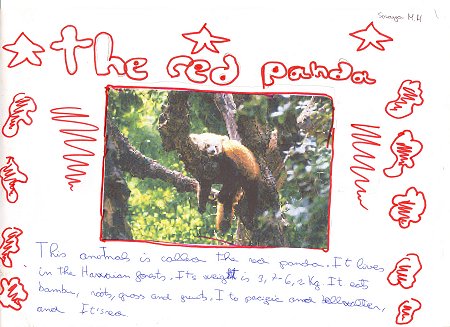 Soraya M.H
the red panda
This animals is called the red panda. It lives
in the forests. It's weight is 3,7-6,2 Kg. It eats
bambu, roots, grass and fruits. I to pacific and
and It's red